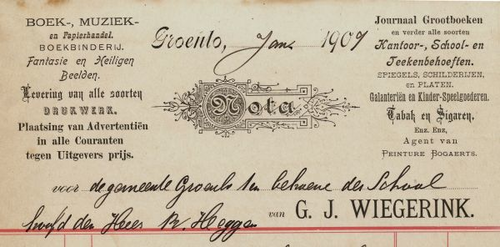 BOEK-, MUZIEK-
en Papierhandel.
BOEKBINDERIJ.
Fantasie en Heiligen
Beelden.
Levering van alle soorten
DRUKWERK.
Plaatsing van Advertentiën
in alle Couranten
tegen Uitgevers prijs.
Groenlo, Jan 1907
Nota
Journaal Grootboeken
en verder alle soorten
Kantoor-, School- en
Teekenbehoeften.
SPIEGELS, SCHILDERIJEN,
en PLATEN.
Galanteriën en Kinder-Speelgoederen.
Tabak en Sigaren.
ENZ. ENZ.
Agent van
PEINTURE BOGAERTS.
voor de gemeente Groenlo ten behoeve der School
hoofd den Heer R. Heggen
van G. J. WIEGERINK.